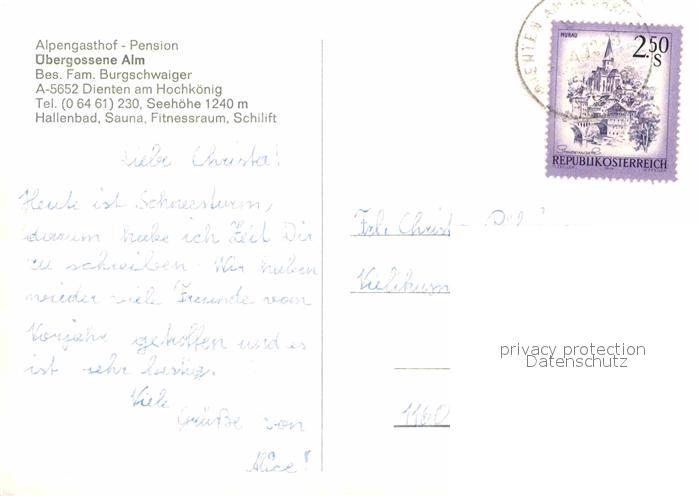 Alpengasthof - Pension
Übergossene Alm
Bes. Fam. Burgschwaiger
A-5652 Dienten am Hochkönig
Tel. (0 64 61) 230, Seehöhe 1240 m
Hallenbad, Sauna, Fitnessraum, Schilift
MURAU
2.50
S
REPUBLIK ÖSTERREICH
Liebe Christa!
Heute ist Schneesturm,
darum habe ich Zeit Dir
zu schreiben. Wir haben
wieder viele Freunde vom
Vorjahr getroffen und es
ist sehr lustig.
Viele
Grüße von
Alice!
Frl. Christ
1160
privacy protection
Datenschutz